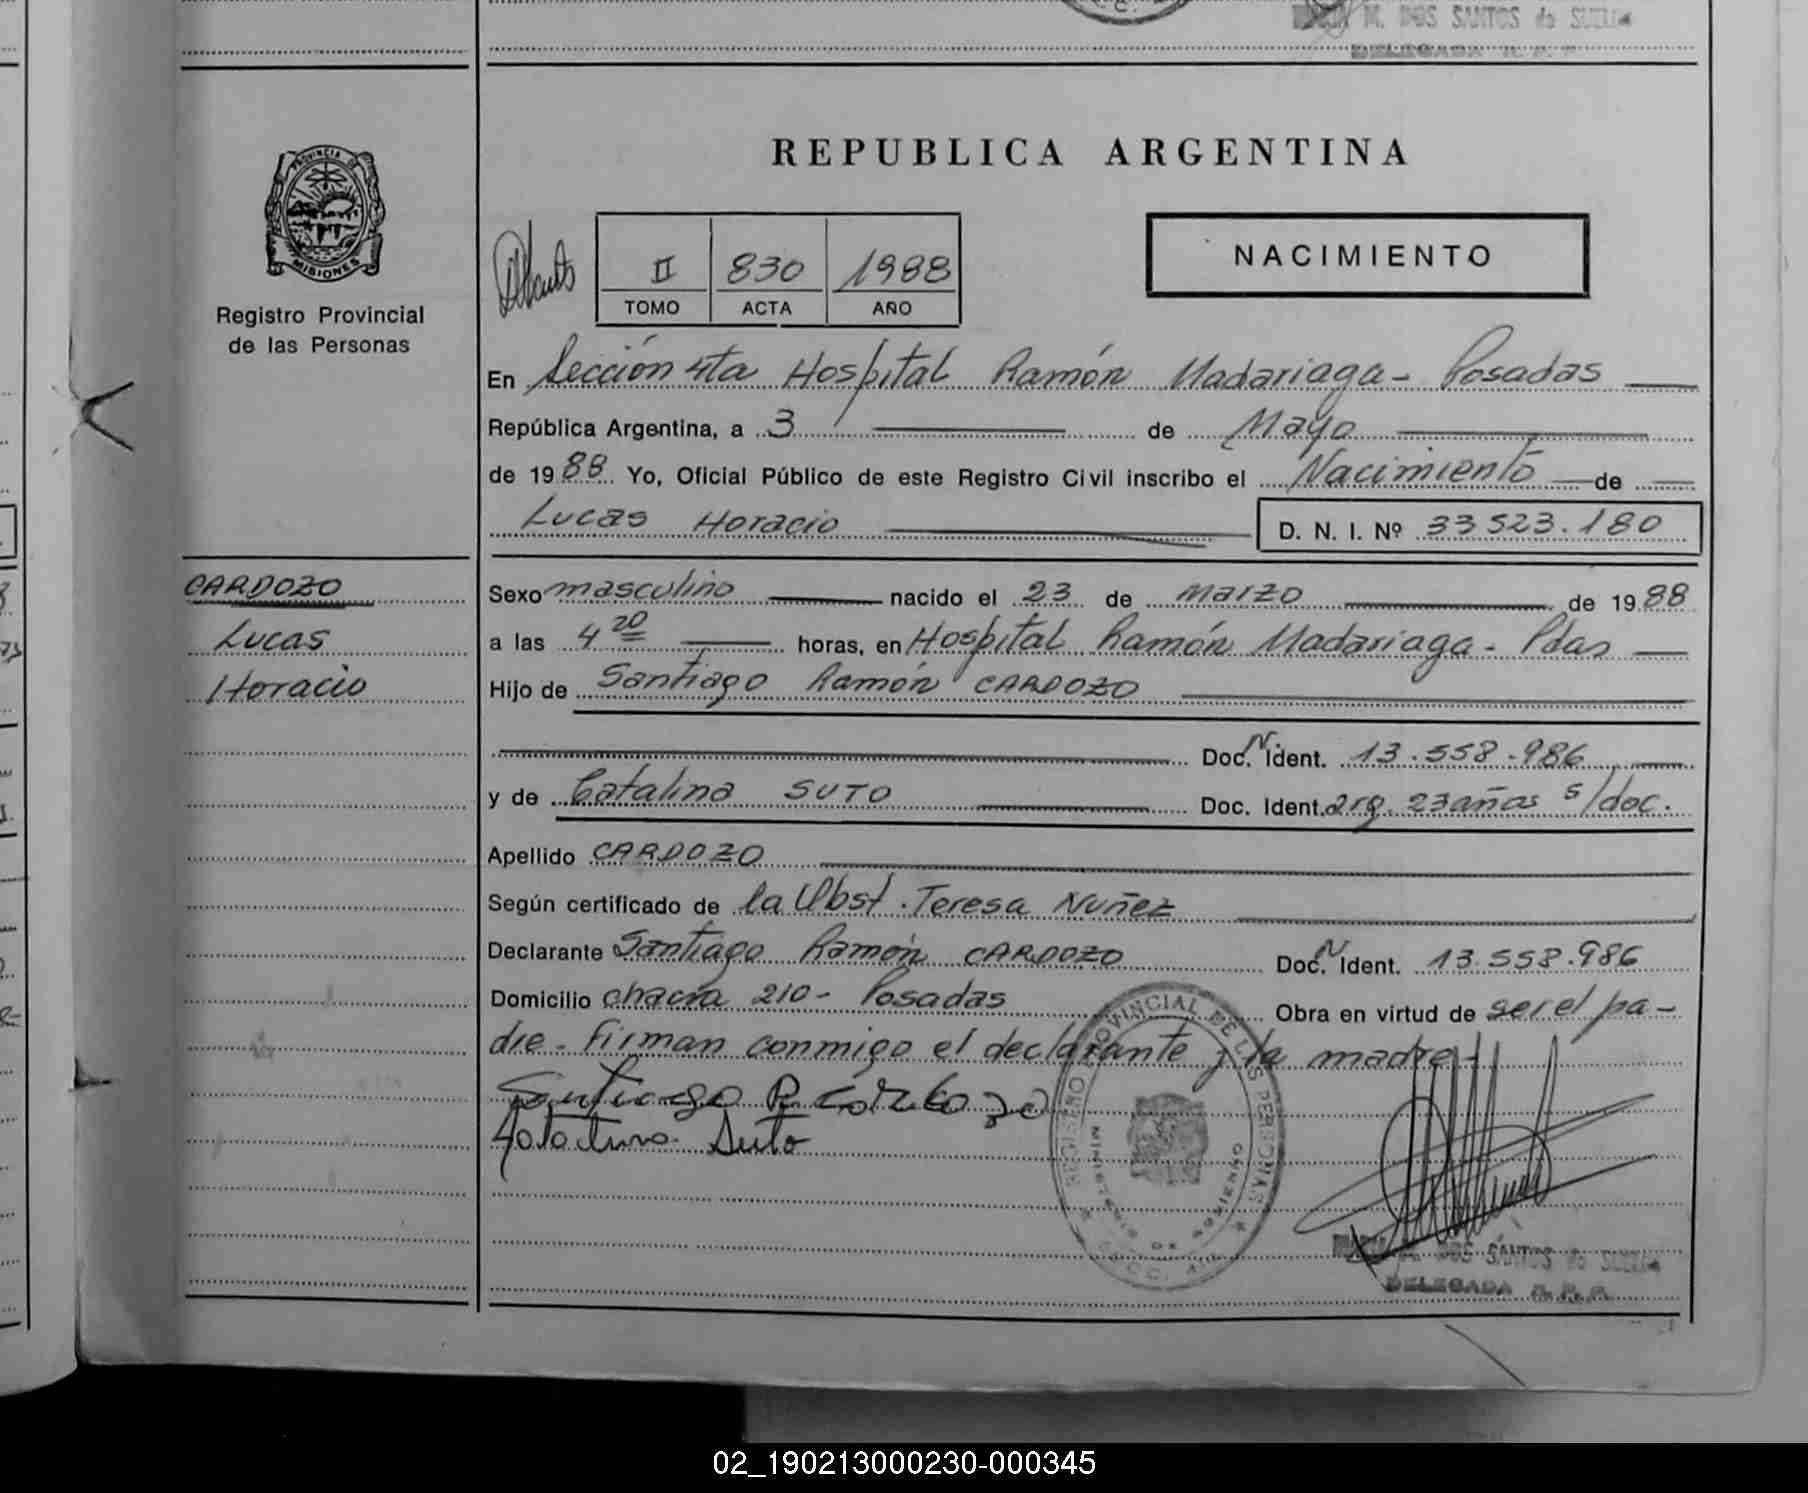 M. DOS SANTOS de SUELI
DELEGADA R. P. P.
PROVINCIA DE
MISIONES
Registro Provincial
de las Personas
REPUBLICA ARGENTINA
II 830 1988
TOMO ACTA AÑO
NACIMIENTO
En Sección 4ta Hospital Ramón Madariaga - Posadas
República Argentina, a 3 de Mayo
de 1988 Yo, Oficial Público de este Registro Civil inscribo el Nacimiento de
Lucas Horacio D. N. I. Nº 33523.180
CARDOZO
Lucas
Horacio
Sexo masculino nacido el 23 de marzo de 1988
a las 4 20 horas, en Hospital Ramón Madariaga - Pdas
Hijo de Santiago Ramón CARDOZO
Doc. N. Ident. 13.558.986
y de Catalina SUTO Doc. Ident. arg. 23 años s/doc.
Apellido CARDOZO
Según certificado de la Obst. Teresa Nuñez
Declarante Santiago Ramón CARDOZO Doc. N Ident. 13.558.986
Domicilio chacra 210 - Posadas Obra en virtud de ser el pa-
dre - Firman conmigo el declarante y la madre -
Santiago R Cardozo
Suto
REGISTRO PROVINCIAL DE LAS PERSONAS
MINISTERIO DE GOBIERNO
SECC. 4ta
M. DOS SANTOS de SUELI
DELEGADA R. P. P.
02_190213000230-000345